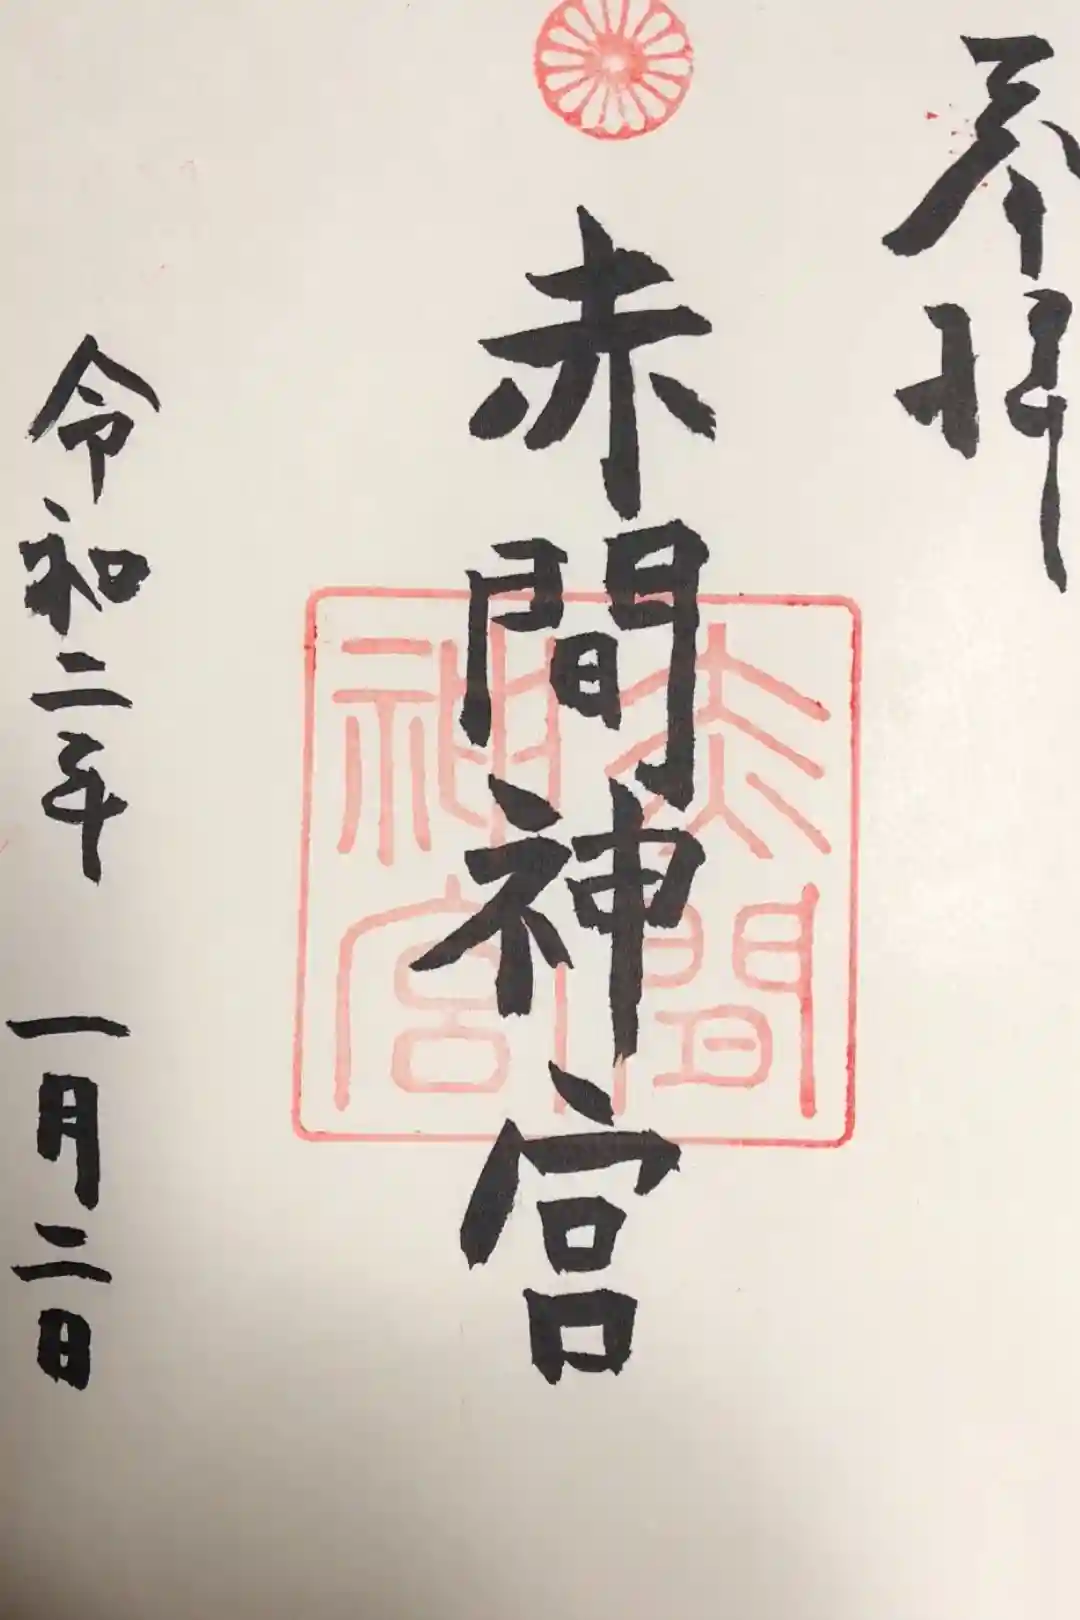 奉拝
赤間神宮
赤間
神宮
令和二年 一月二日